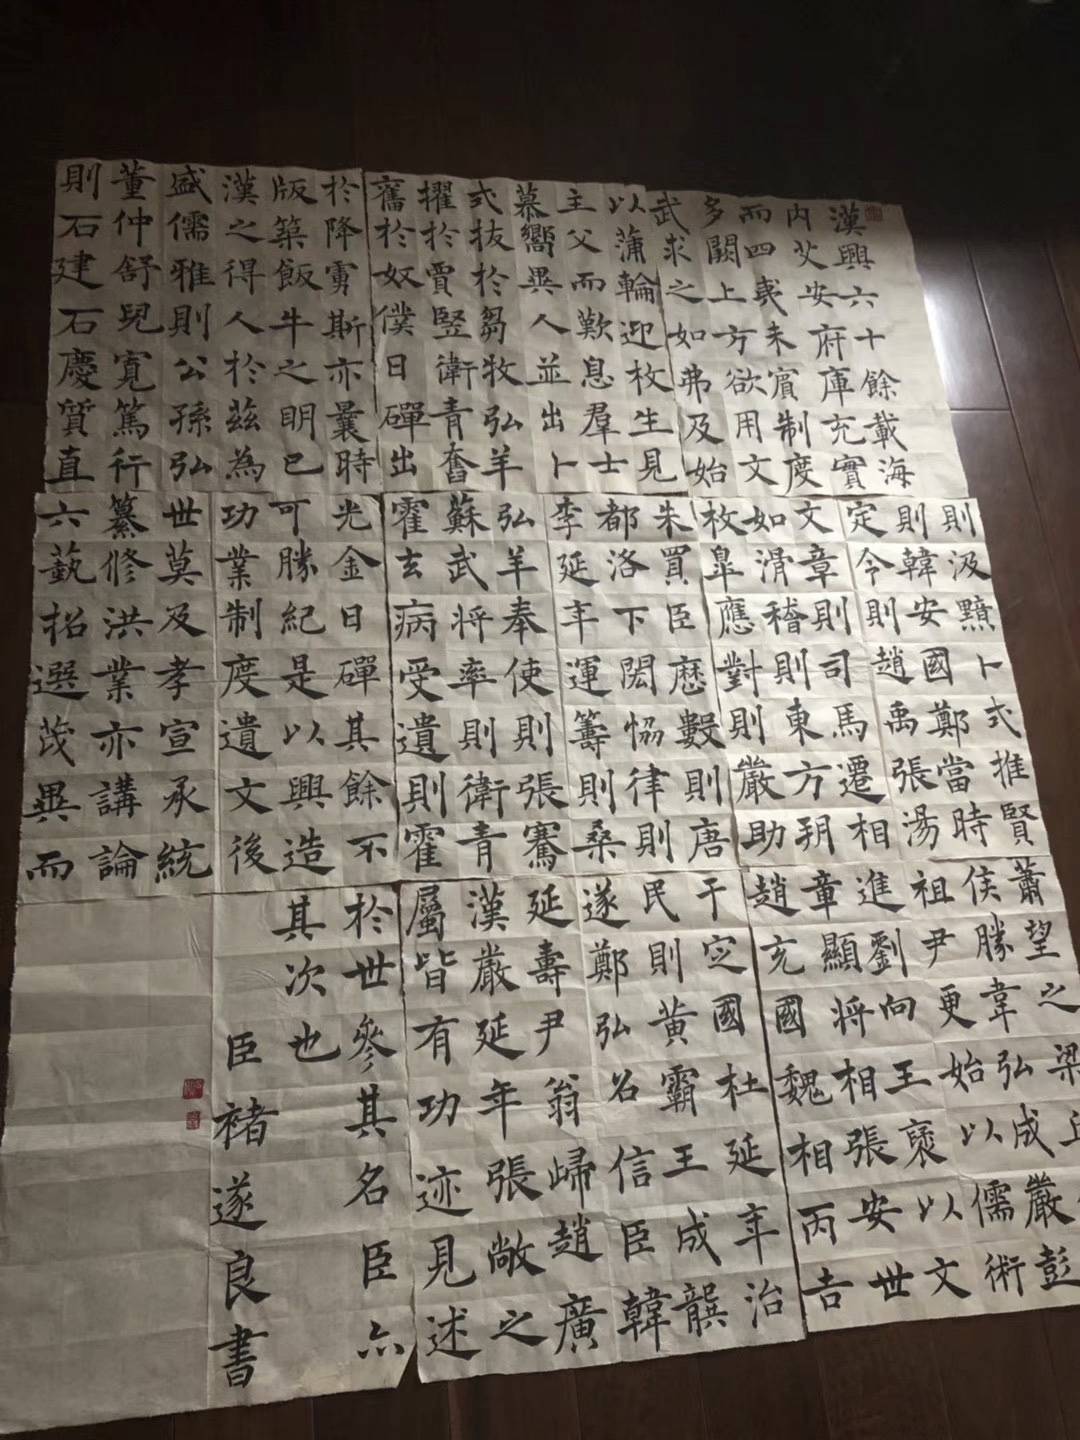 漢興六十餘載海
內艾安府庫充實
而四夷未賓制度
多闕上方欲用文
武求之如弗及始
以蒲輪迎枚生見
主父而歎息羣士
慕嚮異人並出卜
式拔於芻牧弘羊
擢於賈竪衛青奮
奮於奴僕日磾出
於降虜斯亦曩時
版築飯牛之明已
漢之得人於茲為
盛儒雅則公孫弘
董仲舒兒寬篤行
則石建石慶質直
則汲黯卜式推賢
則韓安國鄭當時
定令則趙禹張湯
文章則司馬遷相
如滑稽則東方朔
枚皋應對則嚴助
朱買臣歷數則唐
都洛下閎恊律則
李延年運籌則桑
弘羊奉使則張騫
蘇武將率則衛青
霍去病受遺則霍
光金日磾其餘不
可勝紀是以興造
功業制度遺文後
世莫及孝宣承統
纂修洪業亦講論
六藝招選茂異而
蕭望之梁丘
侯勝韋弘成嚴彭
祖尹更始以儒術
進劉向王褒以文
章顯將相張安世
趙充國魏相丙吉
于定國杜延年治
民則黃霸王成龔
遂鄭弘召信臣韓
延壽尹翁歸趙廣
漢嚴延年張敞之
屬皆有功迹見述
於世參其名臣亦
其次也
臣褚遂良書